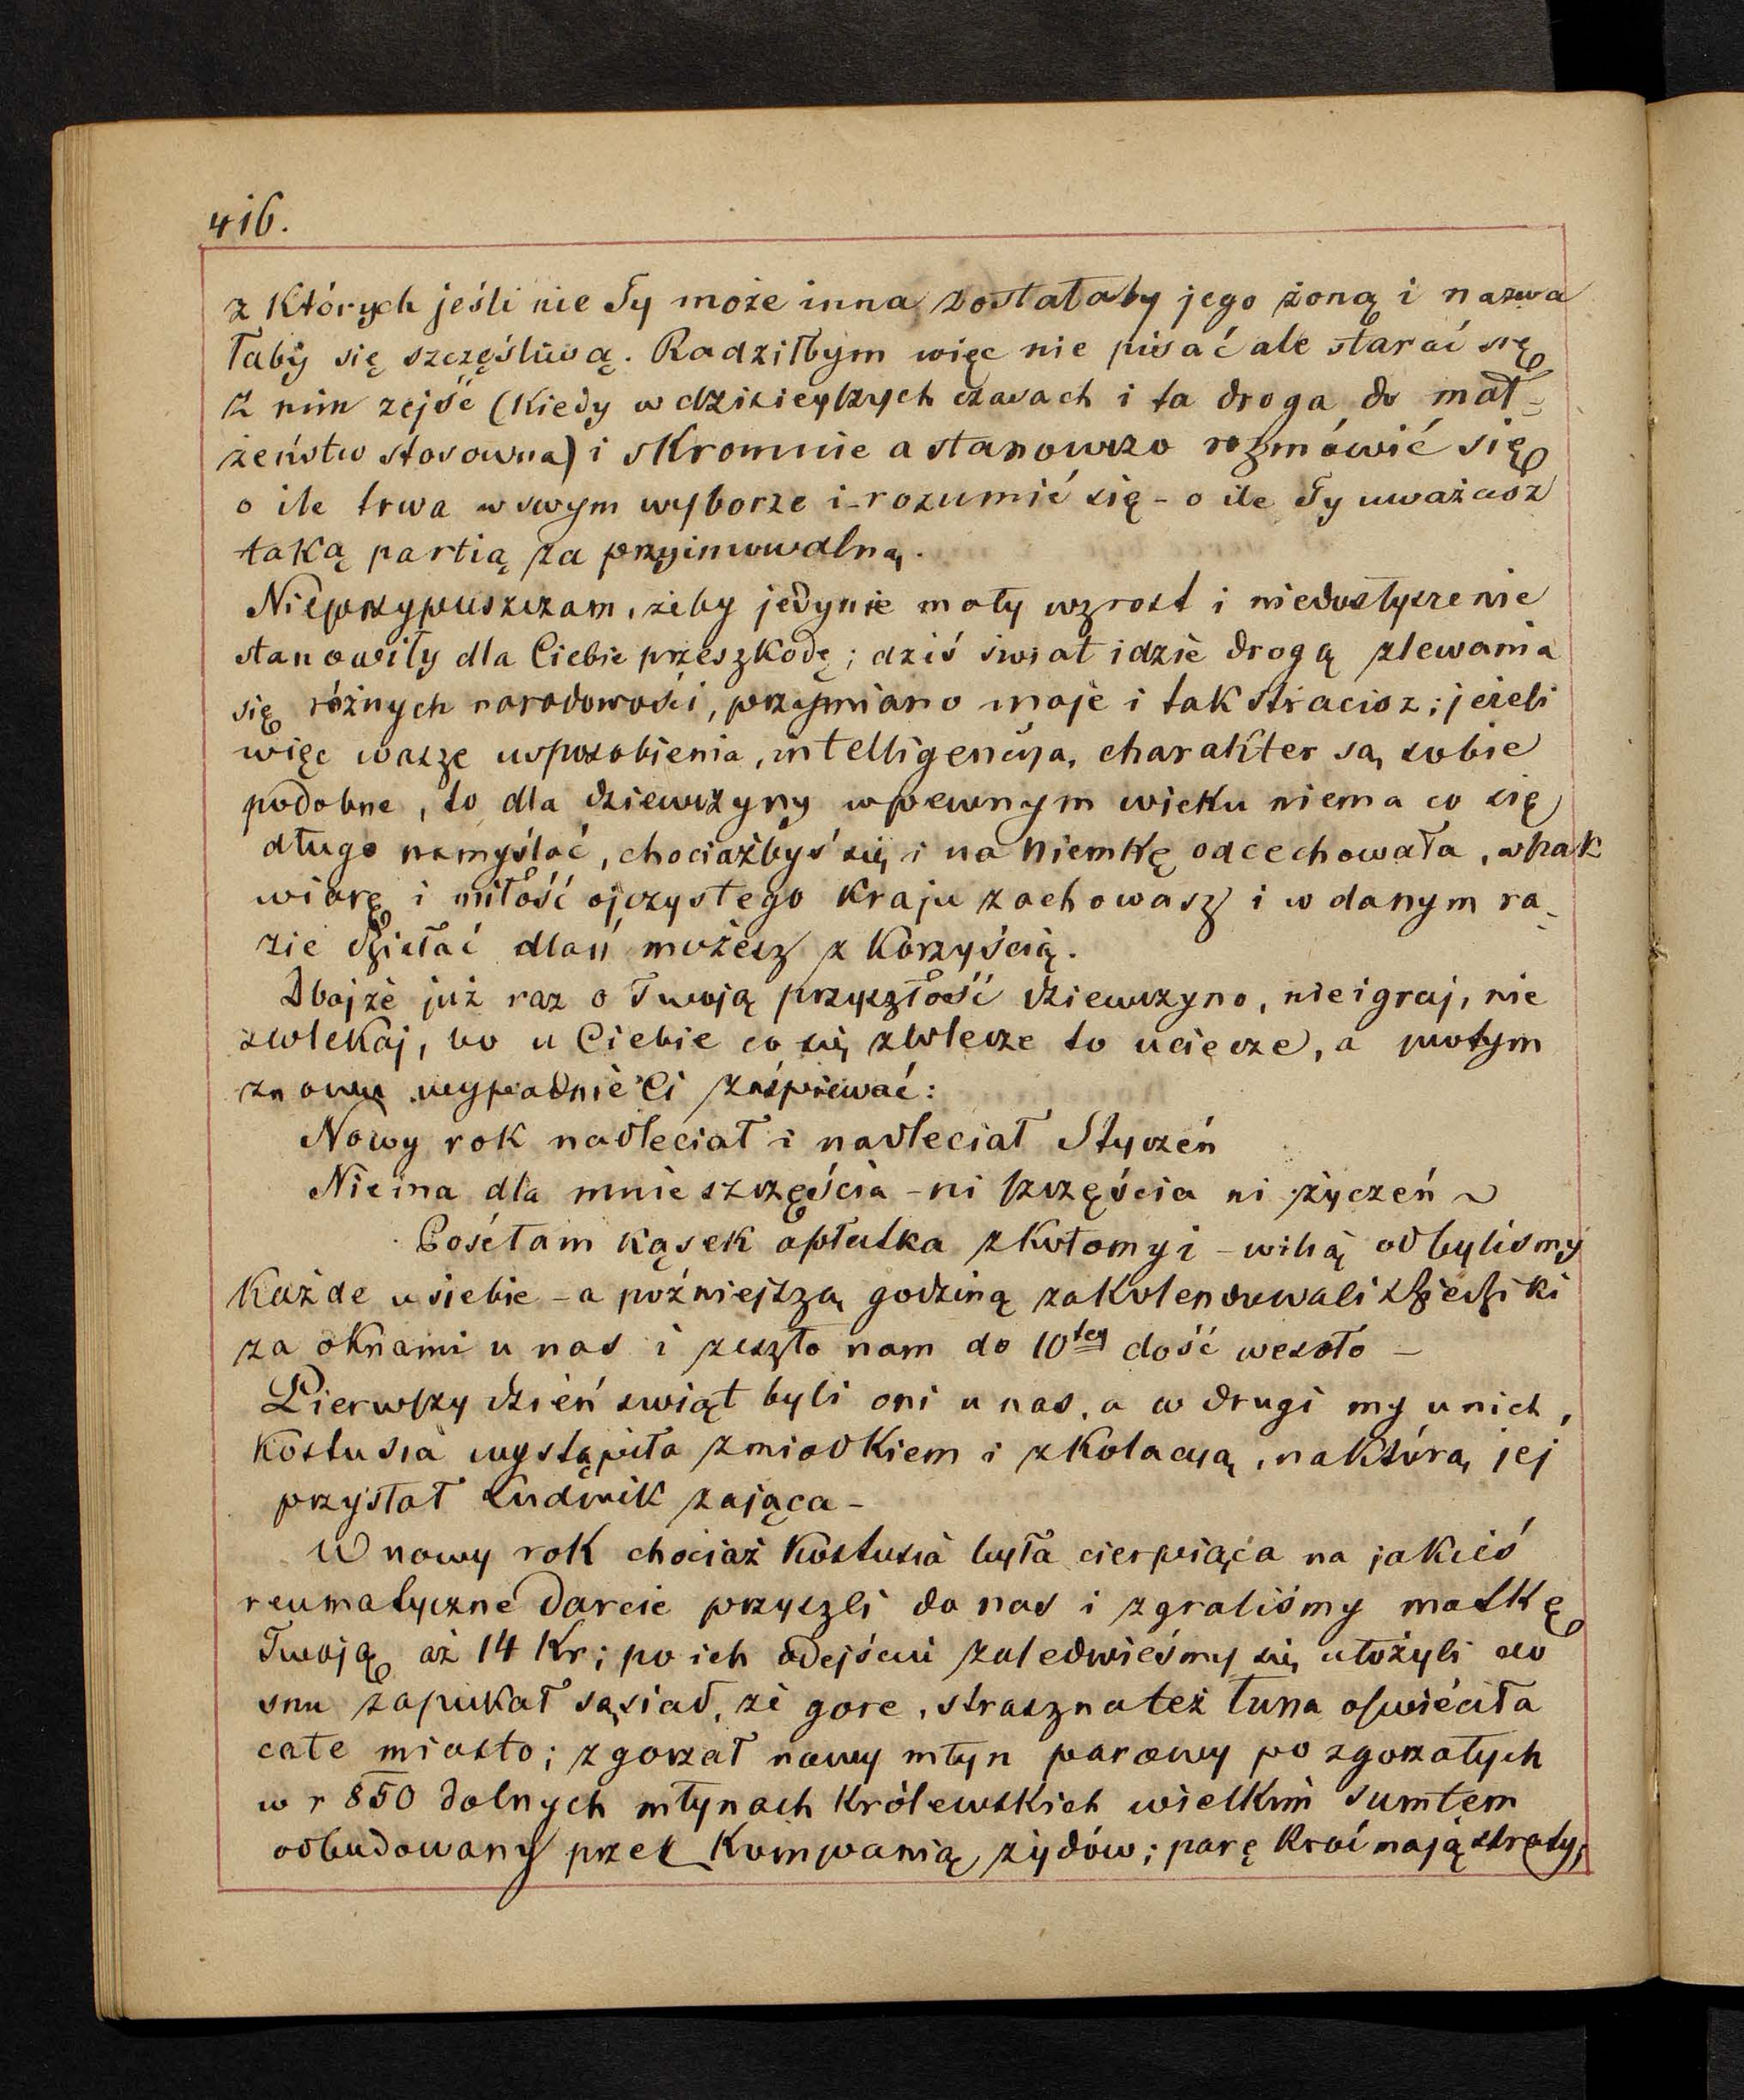 416.
z Których jeśli nie Ty może inna zostałaby jego żoną i nazwa
łaby się szczęśliwą. Radziłbym więc nie pisać ale starać się
z nim zejść (Kiedy w dzisieyszych czasach i ta droga do mał=
żeństw stosowna) i skromnie a stanowczo rozmówić się
o ile trwa w swym wyborze i rozumić się - o ile Ty uważasz
taką partią za przyimowalną.
Nieprzypuszczam, żeby jedynie mały wzrost i niedosłyszenie
stanowiły dla Ciebie przeszkodę; dziś świat idzie drogą zlewania
się różnych narodowości, przymiano moje i tak stracisz; jeżeli
więc wasze usposobienia, intelligencija, charakter są sobie
podobne, to dla dziewczyny w pewnym wieku niema co się
długo namyślać, chociażbyś się i na Niemkę odcechowała, wszak
wiarę i miłość ojczystego Kraju zachowasz i w danym ra-
zie działać dlań możesz z Korzyścią.
Dbajże już raz o Twoją przyszłość dziewczyno, nieigraj, nie
zwlekaj, bo u Ciebie co się zwlecze to uciecze, a potym
znowu wypadnie Ci zaśpiewać:
Nowy rok nadleciał i nadleciał Styczeń
Niema dla mnie szczęścia - ni szczęścia ni życzeń ~
Posełam kąsek opłatka z Kołomyi - wilią odbylismy
Każde u siebie - a późniejszą godziną zakolendowali dziedziki
za oknami u nas i zeszło nam do 10tey dość wesoło -
Pierwszy dzień swiąt byli oni u nas, a w drugi my u nich,
Kostusia wystąpiła z miodkiem i z Kolacyą, na którą jej
przysłał Ludwik zająca -
W nowy rok chociaż Kostusia była cierpiąca na jakieś
reumatyczne darcie przyszli do nas i zgraliśmy matkę
Twoją aż 14 Kr; po ich odejściu zaledwieśmy się ułożyli do
snu zapukał sąsiad, że gore, straszna też łuna oświeciła
całe miasto; zgorzał nowy młyn parowy po zgorzałych
w r 850 dolnych młynach Królewskich wielkim sumtem
odbudowany przez Kompanią żydów; parę Kroć mają straty,